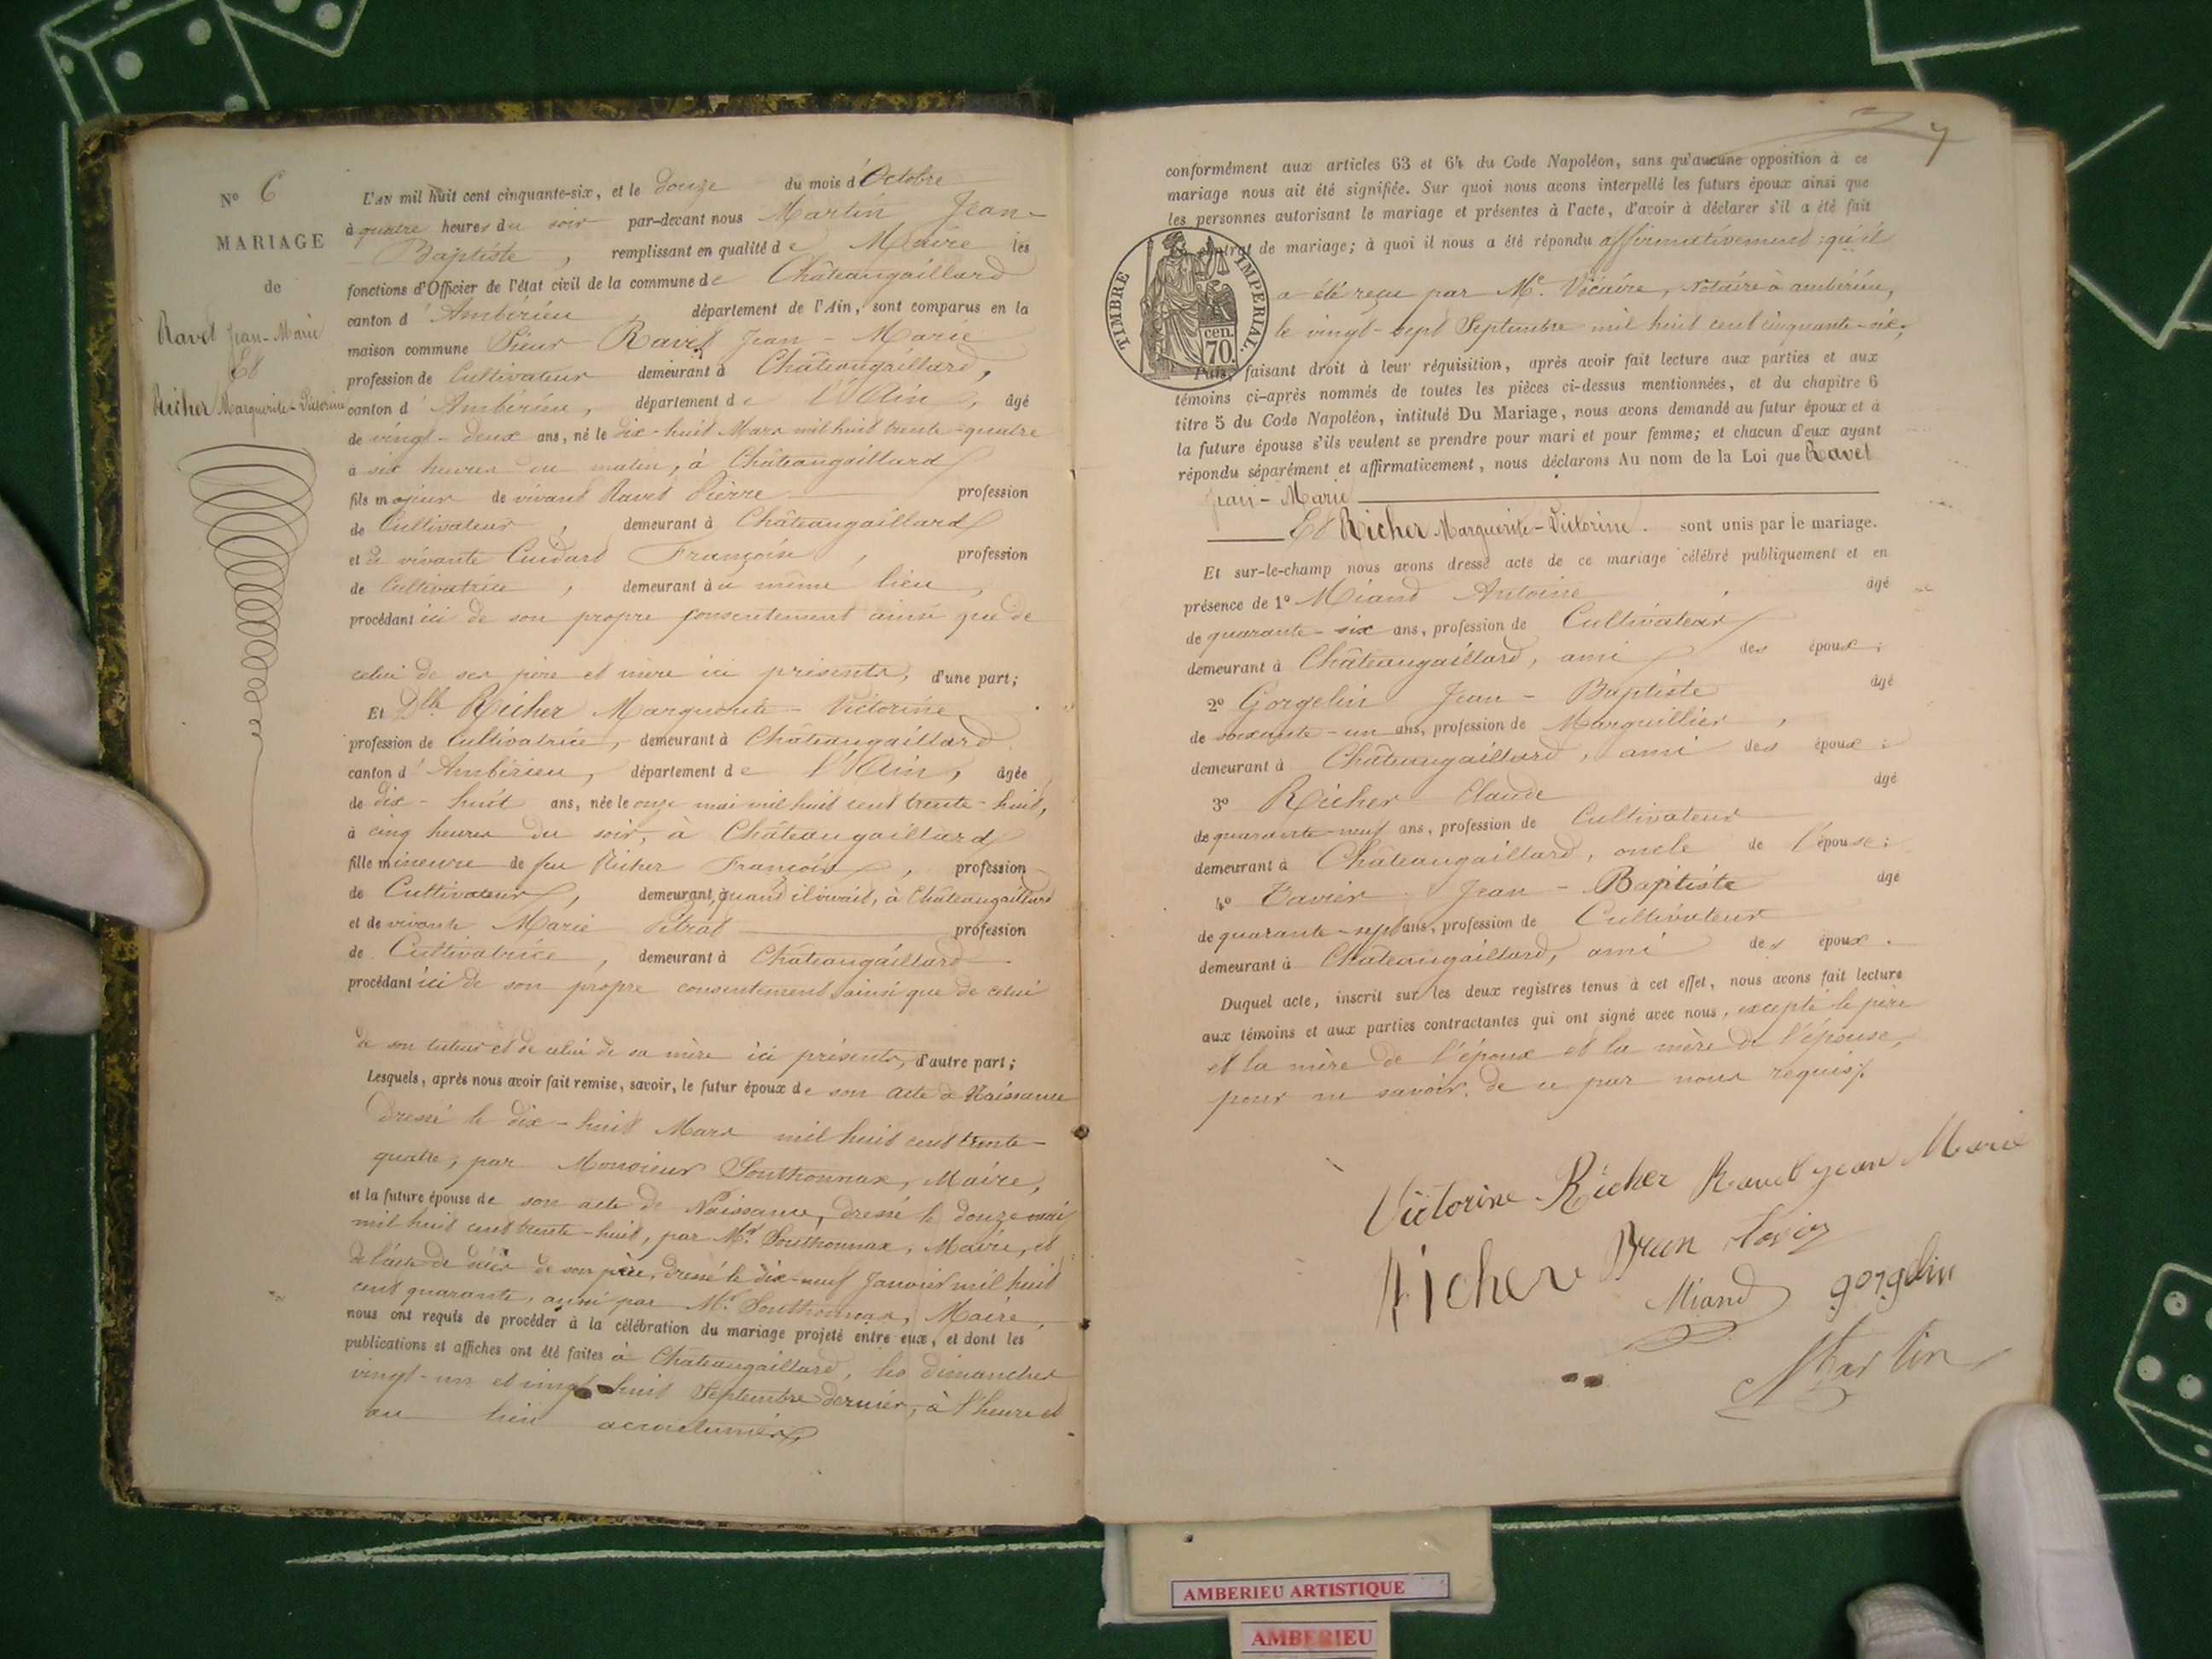 N° 6
MARIAGE
de
Ravet Jean-Marie
Et
Richer Marguerite-Victorine
L'AN mil huit cent cinquante-six, et le douze du mois d'Octobre
à quatre heures du soir par-devant nous Martin Jean-
Baptiste, remplissant en qualité de Maire les
fonctions d'Officier de l'état civil de la commune de Châteaugaillard
canton d'Ambérieu département de l'Ain, sont comparus en la
maison commune Sieur Ravet Jean-Marie
profession de Cultivateur demeurant à Châteaugaillard,
canton d'Ambérieu, département de l'Ain, âgé
de vingt-deux ans, né le dix-huit Mars mil huit trente-quatre
à six heures du matin, à Châteaugaillard
fils majeur de vivant Ravet Pierre profession
de Cultivateur, demeurant à Châteaugaillard
et de vivante Cudard Françoise, profession
de Cultivatrice, demeurant au même lieu,
procédant ici de son propre consentement ainsi que de
celui de ses père et mère ici présents, d'une part;
Et Dlle Richer Marguerite-Victorine
profession de Cultivatrice, demeurant à Châteaugaillard
canton d'Ambérieu, département de l'Ain, âgée
de dix-huit ans, née le onze mai mil huit cent trente-huit,
à cinq heures du soir, à Châteaugaillard
fille mineure de feu Richer François, profession
de Cultivateur, demeurant, quand il vivait, à Châteaugaillard
et de vivante Marie Pétrat profession
de Cultivatrice, demeurant à Châteaugaillard
procédant ici de son propre consentement ainsi que de celui
de son tuteur et de celui de sa mère ici présents, d'autre part;
Lesquels, après nous avoir fait remise, savoir, le futur époux de son acte de Naissance
dressé le dix-huit Mars mil huit cent trente-
quatre, par Monsieur Southonnax, Maire,
et la future épouse de son acte de Naissance, dressé le douze mai
mil huit cent trente-huit, par Mr. Southonnax, Maire, et
de l'acte de décès de son père, dressé le dix-neuf Janvier mil huit
cent quarante, aussi par Mr. Southonnax, Maire,
nous ont requis de procéder à la célébration du mariage projeté entre eux, et dont les
publications et affiches ont été faites à Châteaugaillard, les dimanches
vingt-un et vingt-huit Septembre dernier, à l'heure et
au lieu accoutumés
7
conformément aux articles 63 et 64 du Code Napoléon, sans qu'aucune opposition à ce
mariage nous ait été signifiée. Sur quoi nous avons interpellé les futurs époux ainsi que
les personnes autorisant le mariage et présentes à l'acte, d'avoir à déclarer s'il a été fait
contrat de mariage; à quoi il nous a été répondu affirmativement: qu'il
a été reçu par Me. Vicaire, Notaire à ambérieu,
le vingt-sept Septembre mil huit cent cinquante-six;
TIMBRE IMPERIAL.
cen.
70.
Puis, faisant droit à leur réquisition, après avoir fait lecture aux parties et aux
témoins ci-après nommés de toutes les pièces ci-dessus mentionnées, et du chapitre 6
titre 5 du Code Napoléon, intitulé Du Mariage, nous avons demandé au futur époux et à
la future épouse s'ils veulent se prendre pour mari et pour femme; et chacun d'eux ayant
répondu séparément et affirmativement, nous déclarons Au nom de la Loi que Ravet
Jean-Marie
Et Richer Marguerite-Victorine. sont unis par le mariage.
Et sur-le-champ nous avons dressé acte de ce mariage célébré publiquement et en
présence de 1° Miand Antoine, âgé
de quarante-six ans, profession de Cultivateur
demeurant à Châteaugaillard, ami des époux;
2° Gorgelin Jean-Baptiste âgé
de soixante-un ans, profession de Marguillier,
demeurant à Châteaugaillard, ami des époux;
3° Richer Claude âgé
de quarante-neuf ans, profession de Cultivateur
demeurant à Châteaugaillard, oncle de l'épouse;
4° Tavier Jean-Baptiste âgé
de quarante-sept ans, profession de Cultivateur
demeurant à Châteaugaillard, ami des époux.
Duquel acte, inscrit sur les deux registres tenus à cet effet, nous avons fait lecture
aux témoins et aux parties contractantes qui ont signé avec nous, excepté le père
et la mère de l'époux et la mère de l'épouse,
pour ne savoir, de ce par nous requis.
Victorine Richer Ravet jean Marie
Richer
Miand gorgelin
Martin
AMBERIEU ARTISTIQUE
AMBERIEU